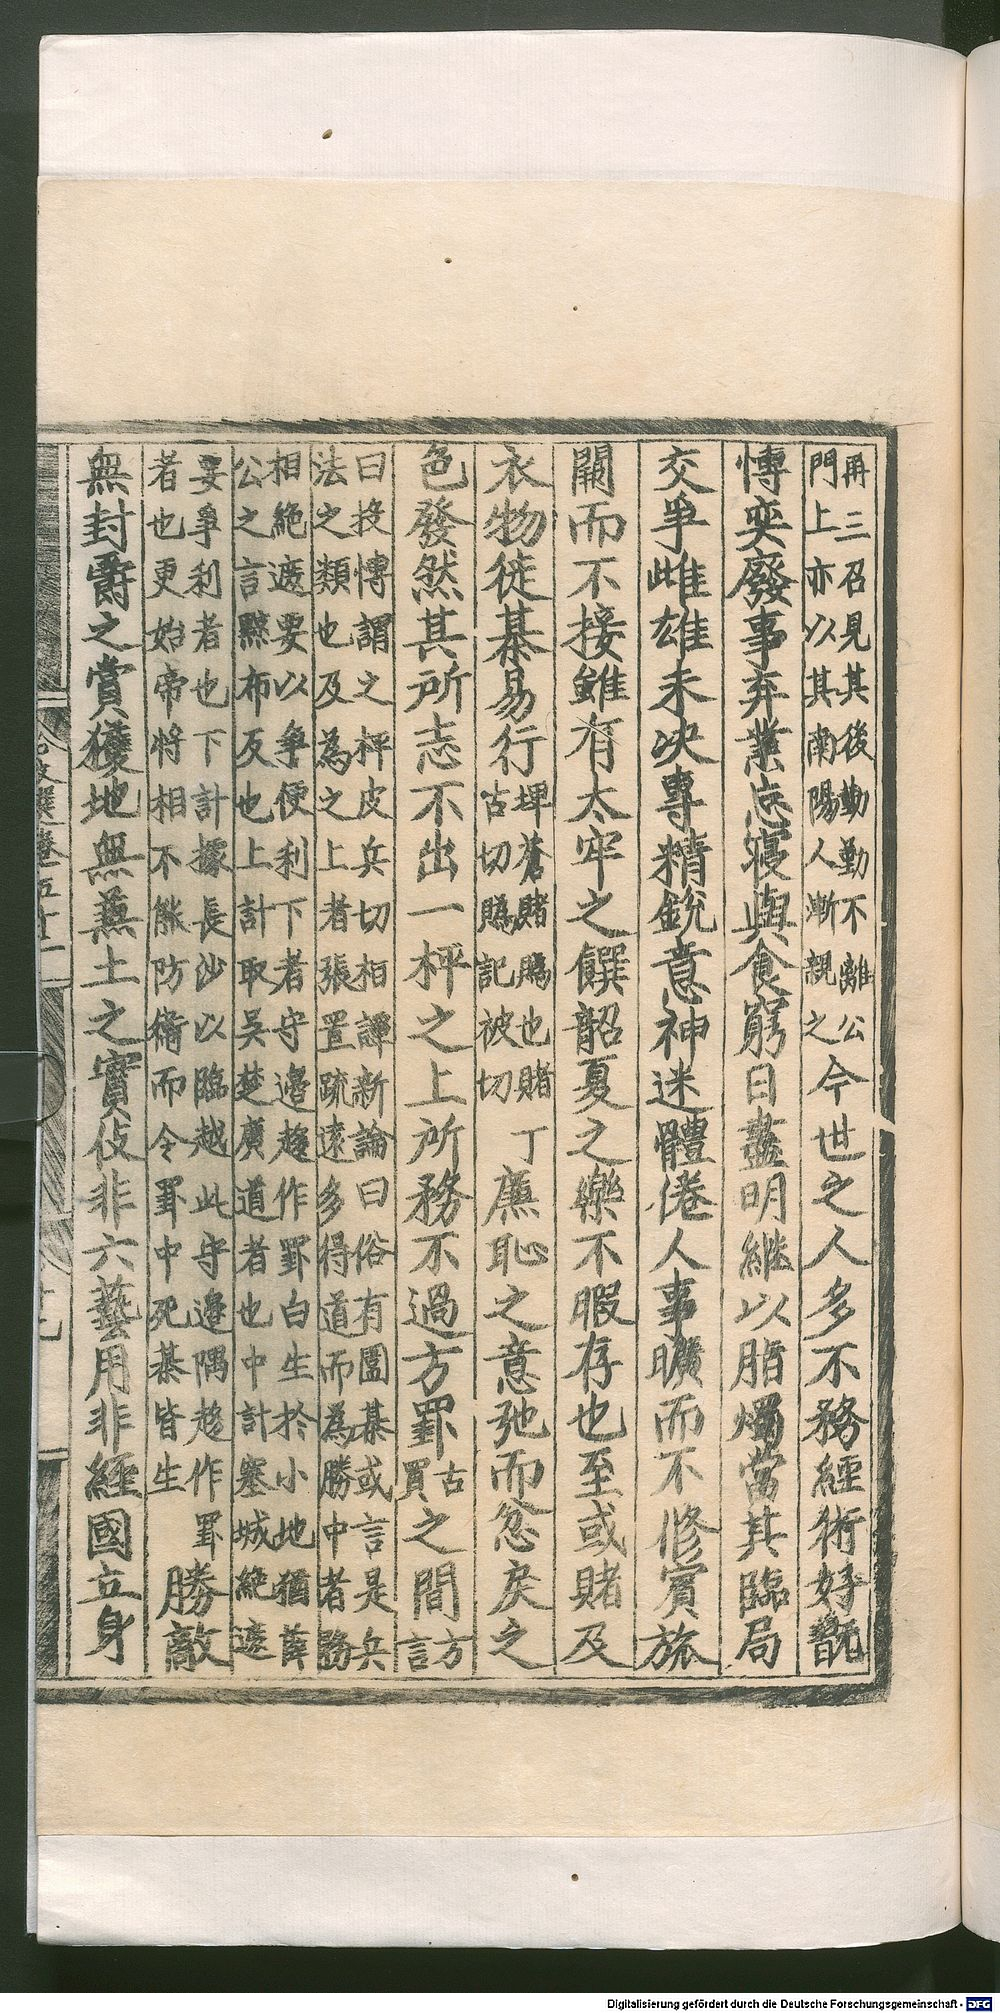 再三召見其後勤勤不離公
門上亦以其南陽人漸親之
今世之人多不務經術好翫
博奕廢事弃業忘寢與食窮日盡明繼以脂燭當其臨局
交爭雌雄未决專精銳意神迷體倦人事曠而不修賔旅
闕而不接雖有太牢之饌韶夏之樂不暇存也至或賭及
衣物徙棊易行
埤蒼賭賜也賭
古切賜記被切
丁廉恥之意弛而忿戾之
色發然其所志不出一枰之上所務不過方罫
古
買
之間
方
言
曰投博謂之枰皮兵切相譚新論曰俗有圍棊或言是兵
法之類也及為之上者張置疏遠多得道而為勝中者務
相絶遮要以爭便利下者守邊趍作罫白生於小地猶薛
公之言黥布反也上計取吳楚廣道者也中計塞城絶遮
要爭利者也下計據長沙以臨越此守邊隅趍作罫
者也更始帝將相不能防衞而令罫中死棊皆生
勝敵
無封爵之賞獲地無兼土之實伎非六藝用非經國立身